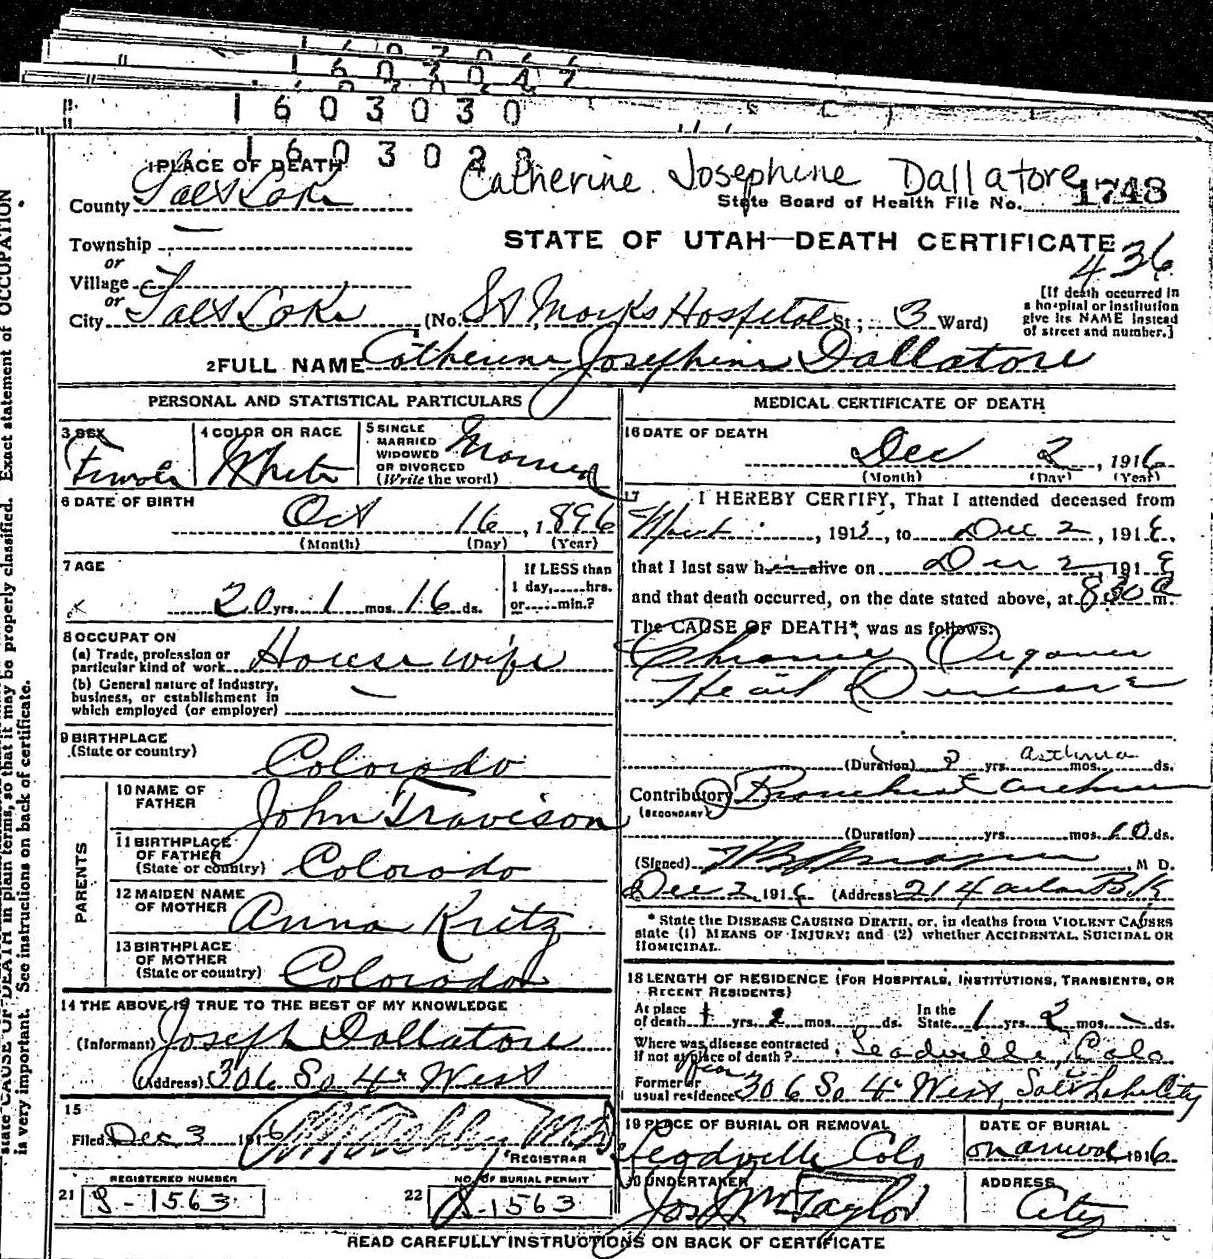 1603047
1603030
1603028
Catherine Josephine Dallatore
1 PLACE OF DEATH
County Salt Lake
State Board of Health File No. 1748
Township —
STATE OF UTAH—DEATH CERTIFICATE
436
or
Village
or
City Salt Lake (No. St Marks Hospital St.; 3 Ward)
[If death occurred in
a hospital or institution
give its NAME instead
of street and number.]
2 FULL NAME Catherine Josephine Dallatore
PERSONAL AND STATISTICAL PARTICULARS
3 SEX
Female
4 COLOR OR RACE
White
5 SINGLE
MARRIED
WIDOWED
OR DIVORCED
(Write the word)
Married
6 DATE OF BIRTH
Oct 16, 1896
(Month) (Day) (Year)
7 AGE
20 yrs. 1 mos. 16 ds.
If LESS than
1 day, hrs.
or min.?
8 OCCUPATION
(a) Trade, profession or
particular kind of work Housewife
(b) General nature of industry,
business, or establishment in
which employed (or employer) —
9 BIRTHPLACE
(State or country)
Colorado
PARENTS
10 NAME OF
FATHER
John Travison
11 BIRTHPLACE
OF FATHER
(State or country)
Colorado
12 MAIDEN NAME
OF MOTHER
Anna Kritz
13 BIRTHPLACE
OF MOTHER
(State or country)
Colorado
14 THE ABOVE IS TRUE TO THE BEST OF MY KNOWLEDGE
(Informant) Joseph Dallatore
(Address) 306 So 4" West
15
Filed Dec 3 1916
REGISTRAR
REGISTERED NUMBER
21 S-1563
NO. OF BURIAL PERMIT
22 S-1563
MEDICAL CERTIFICATE OF DEATH
16 DATE OF DEATH
Dec 2, 1916
(Month) (Day) (Year)
17 I HEREBY CERTIFY, That I attended deceased from
, 191 , to Dec 2, 1916,
that I last saw her alive on Dec 2, 1916
and that death occurred, on the date stated above, at 8 30 a m.
The CAUSE OF DEATH* was as follows:
Chronic Organic
Heart Disease
asthma
(Duration) yrs. mos. ds.
Contributory Bronchial asthma
(SECONDARY)
(Duration) yrs. mos. 10 ds.
(Signed) , M D.
Dec 2, 1916 (Address) 214
* State the DISEASE CAUSING DEATH, or, in deaths from VIOLENT CAUSES
state (1) MEANS OF INJURY; and (2) whether ACCIDENTAL, SUICIDAL OR
HOMICIDAL.
18 LENGTH OF RESIDENCE (FOR HOSPITALS, INSTITUTIONS, TRANSIENTS, OR
RECENT RESIDENTS)
At place
of death 1 yrs. 2 mos. ds.
In the
State 1 yrs. 2 mos. — ds.
Where was disease contracted
if not at place of death? Leadville, Colo
Former or
usual residence 306 So 4" West, Salt Lake City
19 PLACE OF BURIAL OR REMOVAL
Leadville Colo
DATE OF BURIAL
on arrival 1916
20 UNDERTAKER
Jos Wm Taylor
ADDRESS
City
READ CAREFULLY INSTRUCTIONS ON BACK OF CERTIFICATE
state CAUSE OF DEATH in plain terms, so that it may be properly classified. Exact statement of OCCUPATION
is very important. See instructions on back of certificate.